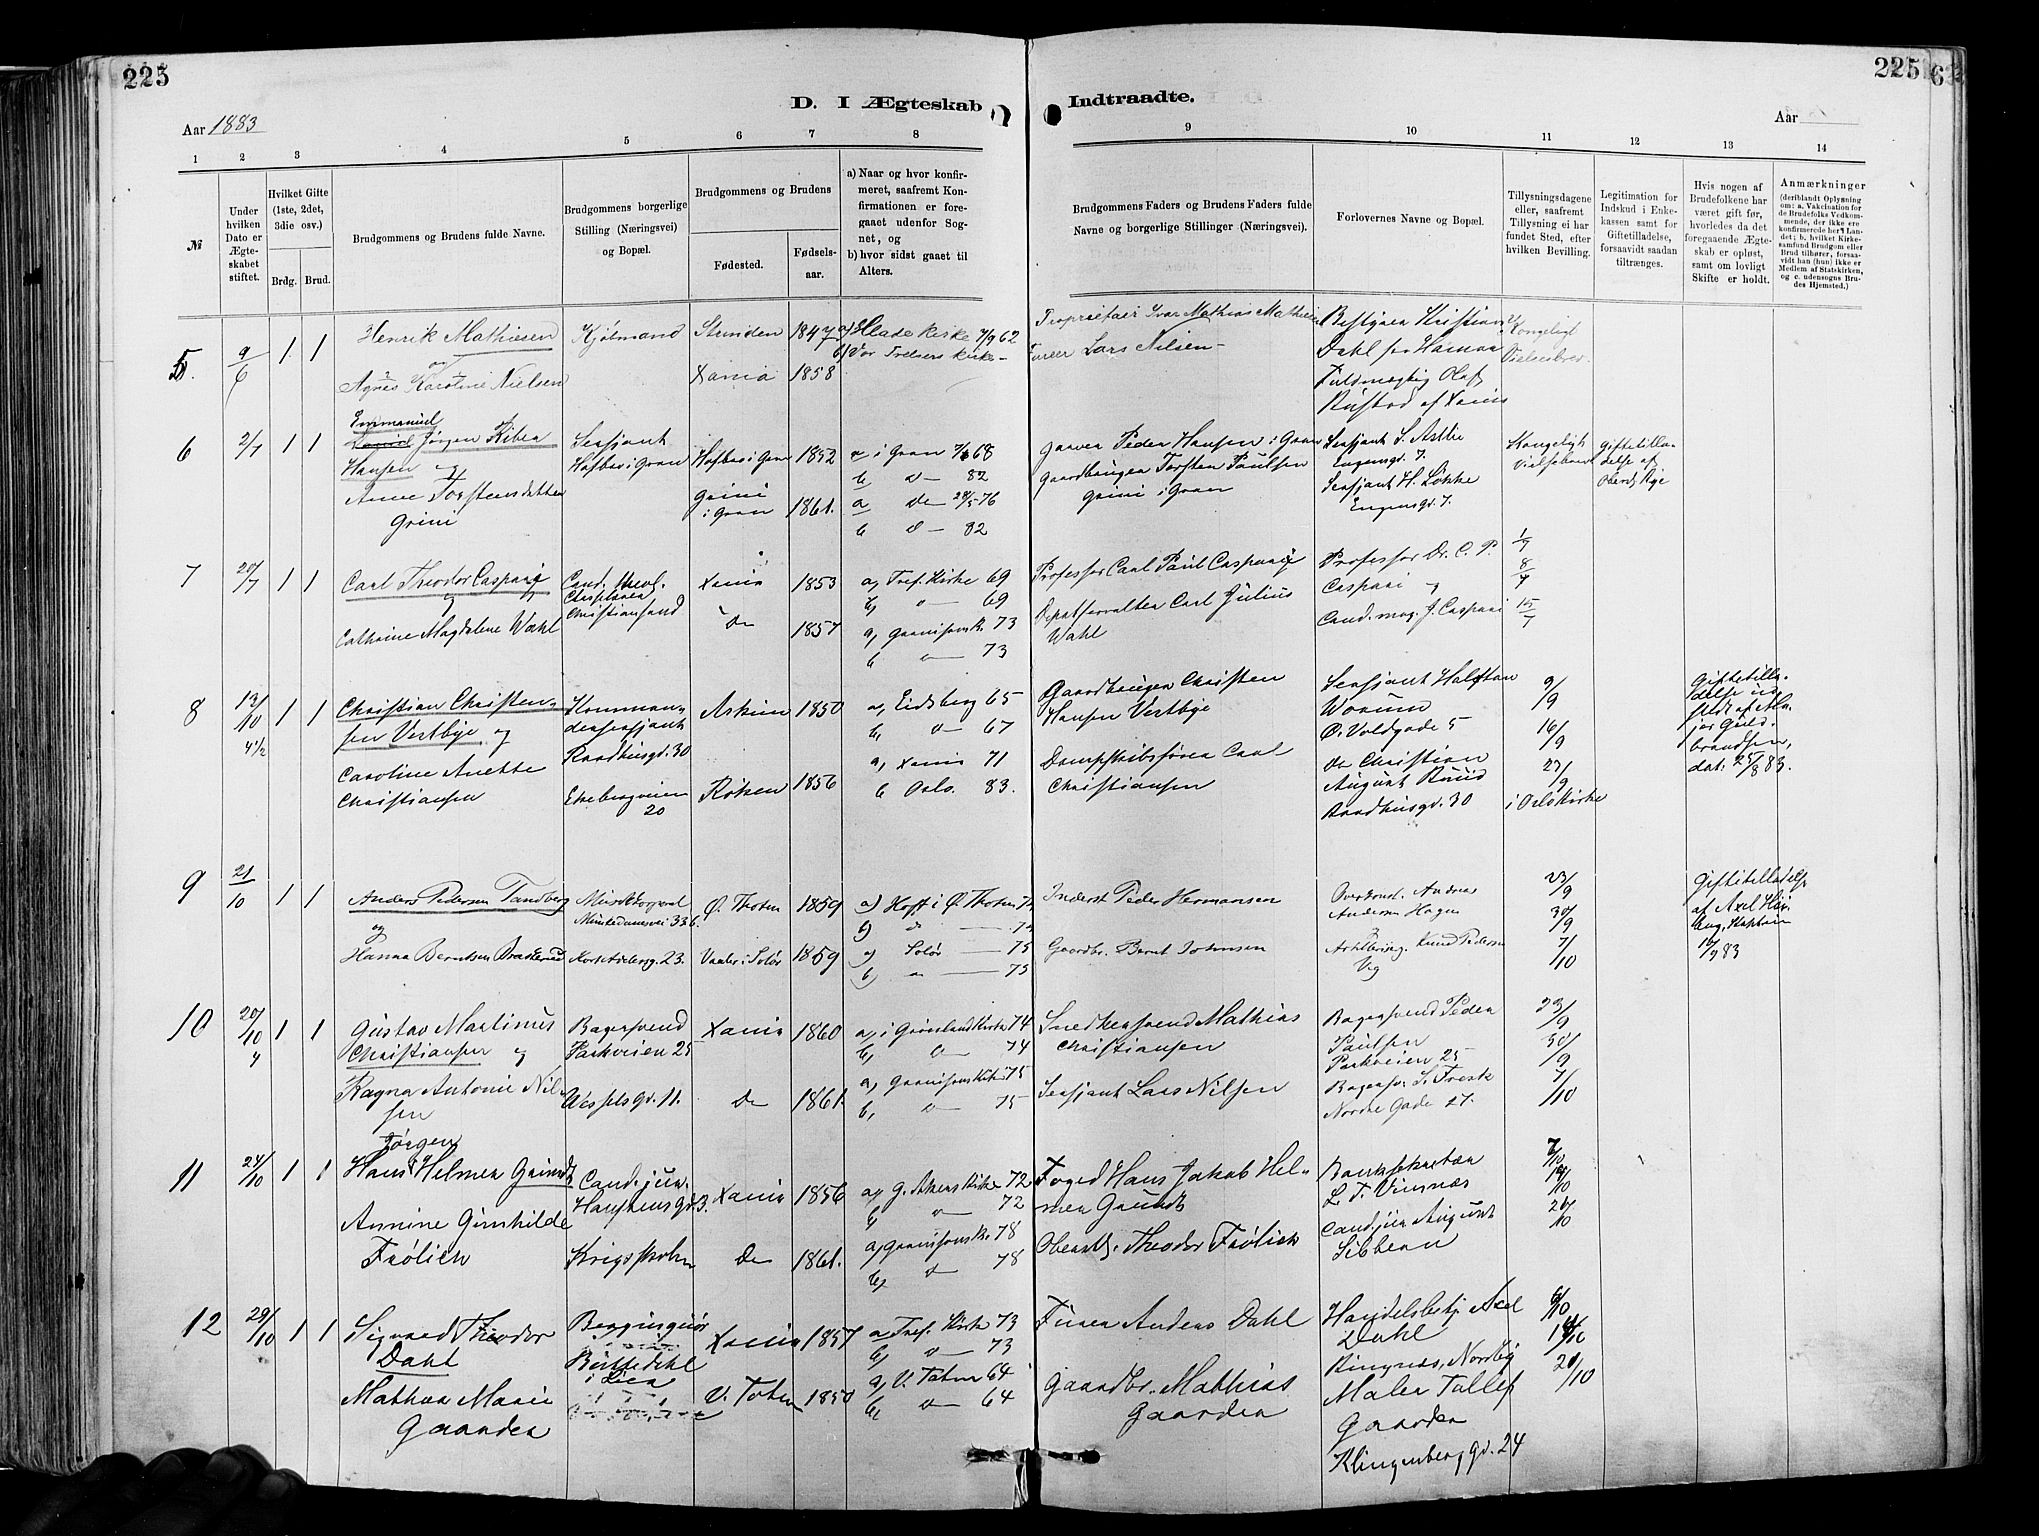 225
225
6
D. I Ægteskab
Indtraadte.
Aar 1883
Aar
1 2 3 4 5 6 7 8 9 10 11 12 13 14
№
Under hvilken Dato er Ægteskabet stiftet.
Hvilket Gifte (1ste, 2det, 3die osv.)
Brdg. Brud.
Brudgommens og Brudens fulde Navne.
Brudgommens borgerlige Stilling (Næringsvei) og Bopæl.
Brudgommens og Brudens
Fødested.
Fødselsaar.
a) Naar og hvor konfirmeret, saafremt Konfirmationen er foregaaet udenfor Sognet, og
b) hvor sidst gaaet til Alters.
Brudgommens Faders og Brudens Faders fulde Navne og borgerlige Stillinger (Næringsvei).
Forlovernes Navne og Bopæl.
Tillysningsdagene eller, saafremt Tillysning ei har fundet Sted, efter hvilken Bevilling.
Legitimation for Indskud i Enkekassen samt for Giftetilladelse, forsaavidt saadan tiltrænges.
Hvis nogen af Brudefolkene har været gift før, hvorledes da det foregaaende Ægteskab er opløst, samt om lovligt Skifte er holdt.
Anmærkninger
(deriblandt Oplysning om: a. Vakcination for de Brudefolks Vedkommende, der ikke ere konfirmerede her i Landet; b. hvilket Kirkesamfund Brudgom eller Brud tilhører, forsaavidt han (hun) ikke er Medlem af Statskirken, og c. udensogns Brudes Hjemsted.)
5. 9/6 1 1
Henrik Mathiesen
og
Agnes Karoline Nielsen
Kjøbmand
Xania
1847
1858
a) Hlade Kirke 7/9 62
b) Vor Frelsers Kirke
Proprietair Ivar Mathias Mathiesen
Lars Nilsen
Bestyrer Kristian
Dahl for Hamar
Fuldmægtig Olaf
Rustad af Xania
Kongeligt
Vielsesbrev
6 2/7 1 1
Emmanuel
Jørgen Ribea
Hansen og
Anne Torstensdatter
Grini
Sersjant
Hofbro i Gran
Hofbro i Gran
Grini
i Gran
1852
1861.
a i Gran 68
b do 82
a do 28/5 76
b do 82
Peder Hansen i Gran
Gaardbruger Torsten Paulsen
Grini i Gran
Sersjant S. Astli
Engensgd. 7.
Sersjant H. Løkke
Engensgd. 7.
Kongeligt
Vielsesbrev
Giftetilladelse af
7 20/7 1 1
Carl Theodor Caspari
og
Cathrine Magdalene Wahl
Cand. theol.
Christiansand
Xania
do
1853
1857
a, Tref. Kirke 69
b, 69
a, Garnisonsk. 73
b 73
Professor Carl Paul Caspari
Depotforvalter Carl Julius
Wahl
Professor Dr. C. P.
Caspari og
Cand. mag. J. Caspari
1/7
8/7
15/7
8 13/10 4½ 1 1
Christian Christensen Vestbye og
Caroline Anette
Christiansen
Kommandersersjant
Raadhusgd. 30
Ekebergveien
20
Askim
Røken
1850
1856
a, Eidsberg 65
b, 67
a, Xania 71
b Oslo. 83.
Gaardbruger Christen
Hansen Vestbye
Dampskibsfører Carl
Christiansen
Sersjant Halfstan
Worum
Ø. Voldgade 5
do Christian
August Ruud
Raadhusgd. 30
9/9
16/9
23/9
i Oslo Kirke
Giftetilladelse udstedt af Major Guldbrandsen,
dat: 25/8 83.
9 21/10 1 1
Anders Pedersen Tandberg
og
Hanna Berntsen Braskerud
Musikkorporal
33 b.
Kort Adelersg. 23.
Ø. Thoten
Vaaler i Solør
1859
1859
a) Hoff i Ø. Thoten
b)
a) Solør 75
b) 75
Inderst Peder Hermansen
Gaardbr. Bernt Johnsen
Andreas
Andersen Hagen
Knud Pedersen
Vig
23/9
30/9
7/10
Giftetilladelse
af Axel
Kaptein
83
10 20/10 4 1 1
Gustav Martinus
Christiansen og
Ragna Antonie Nilsen
Bagersvend
Parkveien 25
Wessels gd. 11.
Xania
do
1860
1861.
a, i Grønland Kirke 74
b, 74
a, Garnisons Kirke 75
b, 75
Snedkersvend Mathias
Christiansen
Sersjant Lars Nilsen
Bagersvend Peder
Paulsen
Parkveien 25
Nordre Gade 27.
23/9
30/9
7/10
11 24/10 1 1
Jørgen
Hans Helmer Grundt
Annine Gunhilde
Frølich
Cand. jur.
Xania
do
1856
1861.
a, G. Akers Kirke 72
b 72
a, Garnisonsk. 78
b, 78
Foged Hans Jakob Helmer Grundt
Oberstl. Theodor Frølich
Banksekretær
L. F. Vinsnæs
Cand. jur. August
Sibbern
7/10
12 29/10 1 1
Sigvard Theodor
Dahl
Mathea Marie
Gaarder
i Lier
Xania
V. Toten
1857
1850
a Tref. Kirke 73
b, 73
a, V. Toten 64
b, 64
Anders Dahl
Gaardbr. Mathias
Gaarder
Handelsbestj. Axel
Dahl
Ringnæs, Nordby
Maler Tallef
Gaarder
Klingenberg gd. 24